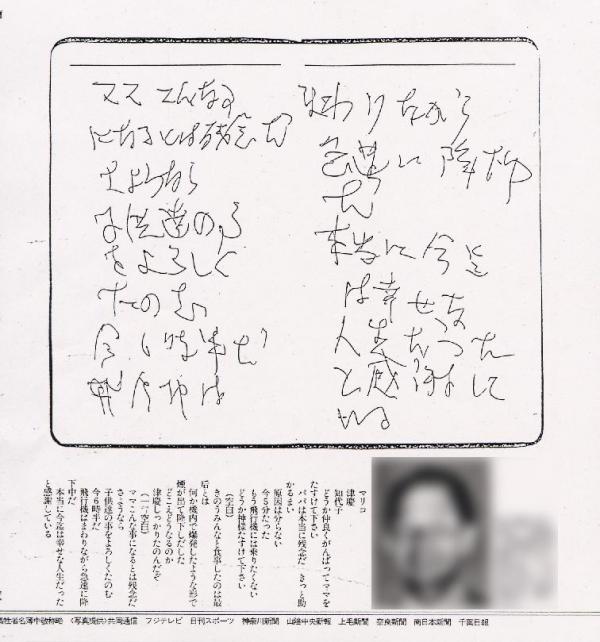 ママ こんな事
になるとは残念だ
さようなら
子供達の事
をよろしく
たのむ
今6時半だ
飛行機は
まわりながら
急速に降下中
だ
本当に今迄
は幸せな
人生だった
と感謝して
いる
マリコ
津慶
知代子
どうか仲良くがんばってママを
たすけて下さい
パパは本当に残念だ きっと助
かるまい
原因は分らない
今5分たった
もう飛行機には乗りたくない
どうか神様たすけて下さい
(空白)
きのうみんなと食事したのは最
后とは
何か機内で爆発したような形で
煙が出て降下しだした
どこえどうなるのか
津慶しっかりたのんだぞ
(一行空白)
ママこんな事になるとは残念だ
さようなら
子供達の事をよろしくたのむ
今6時半だ
飛行機はまわりながら急速に降
下中だ
本当に今迄は幸せな人生だった
と感謝している
牲者名簿中敬称略 〈写真提供〉共同通信 フジテレビ 日刊スポーツ 神奈川新聞 山陰中央新報 上毛新聞 奈良新聞 南日本新聞 千葉日報